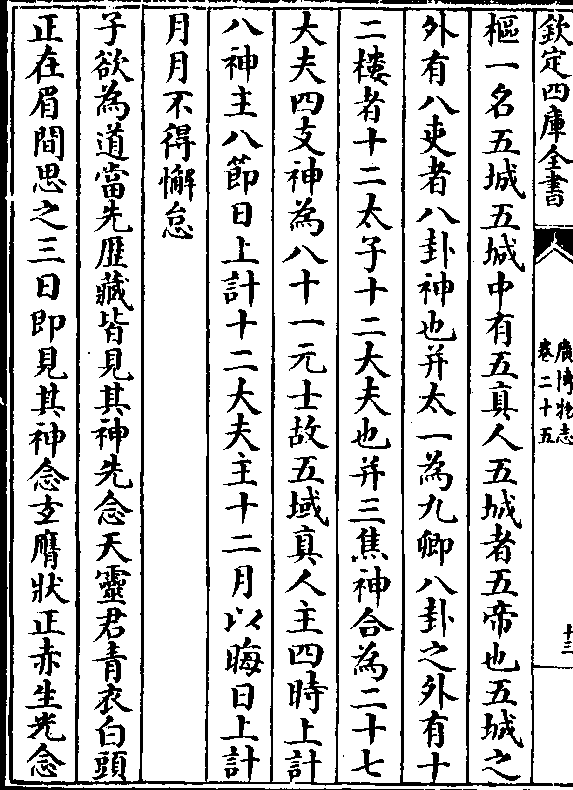 欽定四庫全書
廣博物志
卷二十五
十三
樞一名五城五城中有五真人五城者五帝也五城之
外有八吏者八卦神也并太一為九卿八卦之外有十
二樓者十二太子十二大夫也并三焦神合為二十七
大夫四支神為八十一元士故五域真人主四時上計
八神主八節日上計十二大夫主十二月以晦日上計
月月不得懈怠
子欲為道當先歴藏皆見其神先念天靈君青衣白頭
正在眉間思之三日即見其神念玄膺狀正赤生光念